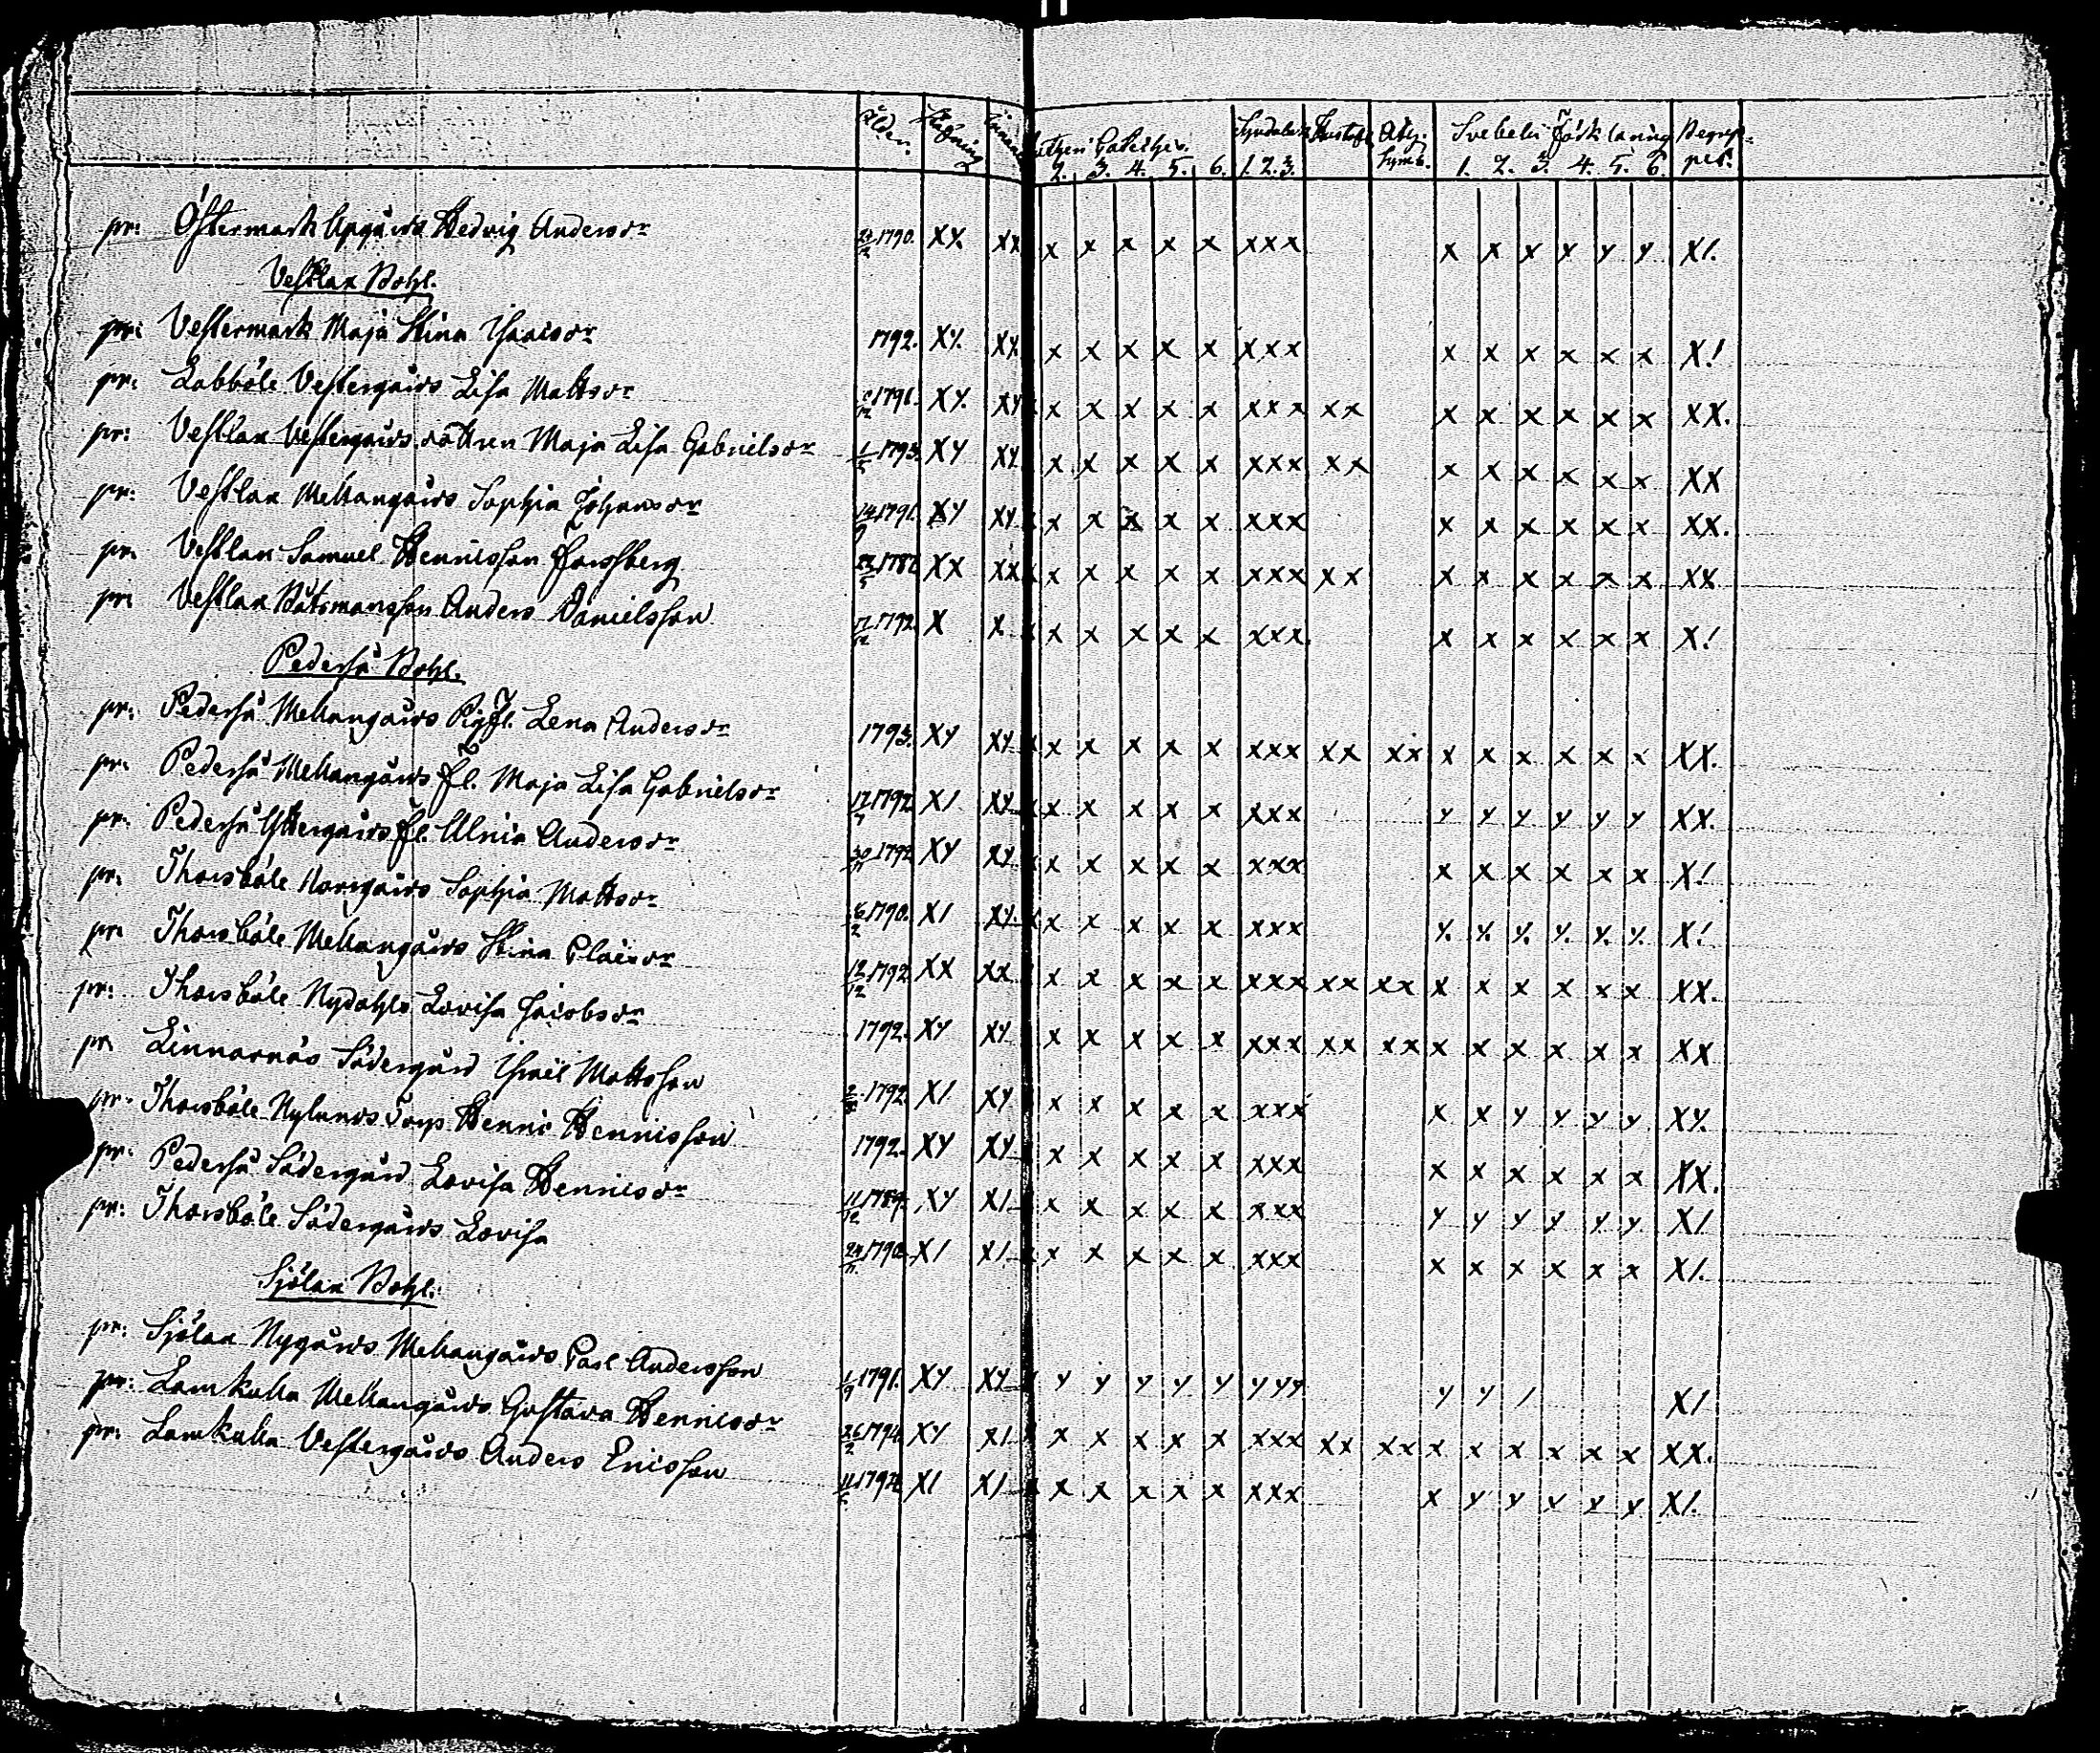 Ålder. Läsning Innant. Lutheri Cateches. Syndabek. Hustafl. Athan. Symb. Svebelii Förklaring Begrep-
2. 3. 4. 5. 6. 1. 2. 3. 1. 2. 3. 4. 5. 6. pet.
pr: Östermark Uppgårds Hedvig Andersdr 1790. XY. XX x x x x x xxx x x x y y y X1.
Vestlax Bohl.
pr: Vestermark Maja Stina Isaacsdr 1792. XY. XY. x x x x x xxx x x x x x x X!
pr: Labböle Vestergårds Lisa Mattsdr 1791. XY. XY x x x x x xxx xx x x x x x x XX.
pr: Vestlax Vestergårds dottren Maja Lisa Gabrielsdr 1/5 1793. XY XY x x x x x xxx xx x x x x x x XX
pr: Vestlax Mellangårds Sophia Johansdr 14/9 1791. XY XY x x x x x xxx x x x x x x XX.
pr. Vestlax Samuel Hennicsson Forssberg XX XX x x x x x xxx xx x x x x x x XX
pr: Vestlax Båtsmansson Anders Danielsson 17/12 1792. X X x x x x x xxx x x x x x x X!
Pederså Bohl.
pr: Pederså Mellangårds Pigfl. Lena Andersdr 1793. XY XY x x x x x xxx xx xx x x x x x x XX.
pr. Pederså Mellangårds fl. Maja Lisa Gabrielsdr 1792 X1 XY x x x x x xxx y y y y y y XX.
pr. Pederså Yttergårds fl. Ulrica Andersdr 30/11 1792 XY XY. x x x x x xxx x x x x x x X!
pr. Thorsböle Norrgårds Sophia Mattsdr 6/2 1790. X1 XY. x x x x x xxx y. y. y. y. y. y. X!
pr. Thorsböle Mellangårds Stina Claësdr 12/12 1792 XX XX x x x x x xxx xx xx x x x x x x XX.
pr: Thorsböle Nydahls Lovisa Jacobsdr 1792. XY XY x x x x x xxx xx xx x x x x x x XX
pr. Linnarnäs Södergård Israël Mattsson 1792. X1 XY x x x x x xxx x x y y y y XY.
pr. Thorsböle Nylunds Torp Henric Hennicsson 1792. XY XY x x x x x xxx x x x x x x XX.
pr. Pederså Södergård Lovisa Hennicsdr 11/12 1789. XY X1 x x x x x xxx y y y y y y X1
pr: Thorsböle Södergårds Lovisa 24/11 1790 X1 X1. x x x x x xxx x x x x x x X1.
Sjölax Bohl.
pr: Sjölax Nygårds Mellangårds Carl Andersson 1/9 1791. XY XY y y y y y yyy y y / X1
pr: Lamkulla Mellangårds Gustava Hennicsdr 26/2 XY X1 x x x x x xxx xx xx x x x x x x XX.
pr. Lamkulla Vestergårds Anders Ericsson X1 X1 x x x x x xxx x y y y y y X1.